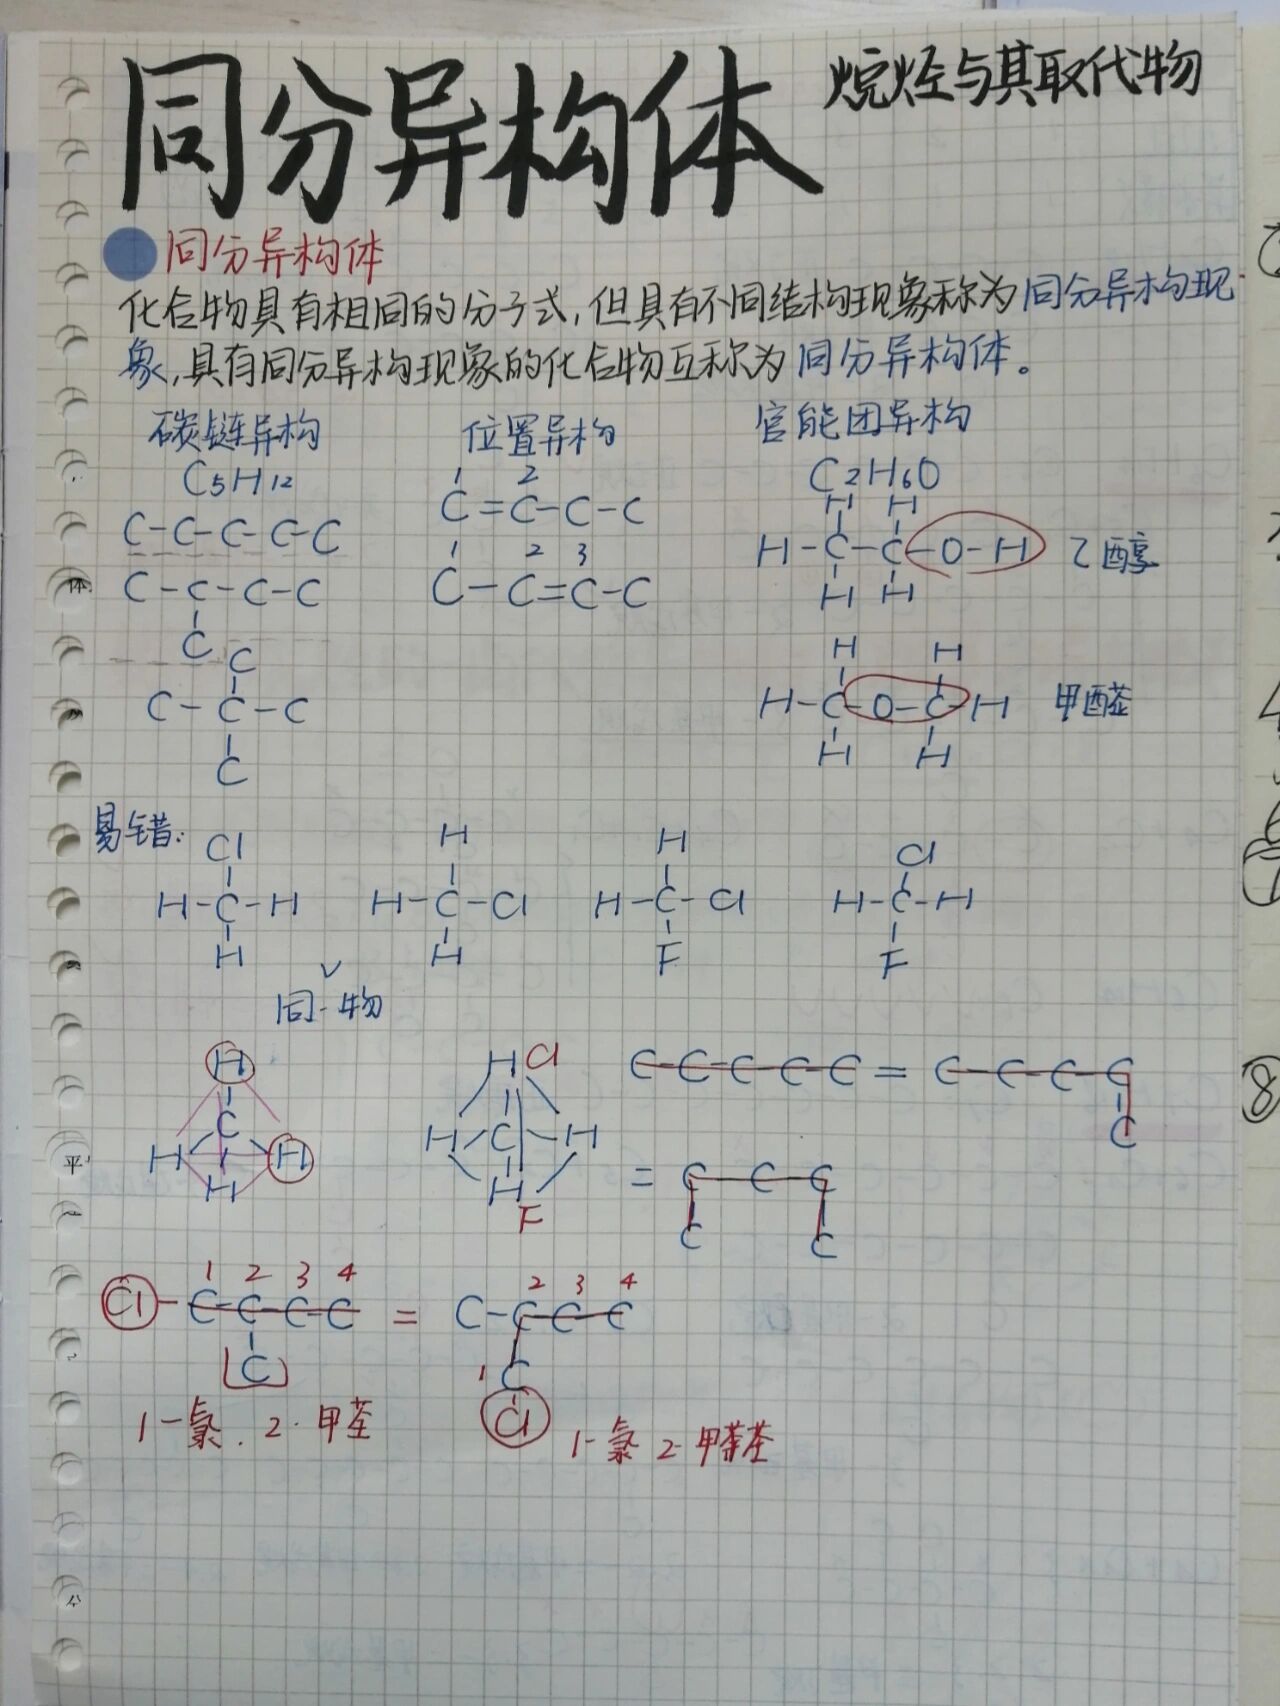 同分异构体 烷烃与其取代物
同分异构体
化合物具有相同的分子式,但具有不同结构现象称为同分异构现
象,具有同分异构现象的化合物互称为同分异构体。
碳链异构 位置异构 官能团异构
C5H12 C2H6O
1 2
C-C-C-C-C C=C-C-C
H H
H-C-C-O-H 乙醇
H H
1 2 3
C-C-C-C C-C=C-C
C
C
C-C-C
C
H H
H-C-O-C-H
H H
甲醚
易错:
Cl H H Cl
H-C-H H-C-Cl H-C-Cl H-C-H
H H F F
同一物
H
C
H H
H
H Cl
H C H
H
F
C-C-C-C-C = C-C-C-C
C
= C-C-C
C C
1 2 3 4
Cl-C-C-C-C = C-C-C-C
C
2 3 4
1 C
Cl
1-氯.2.甲
1-氯2-甲